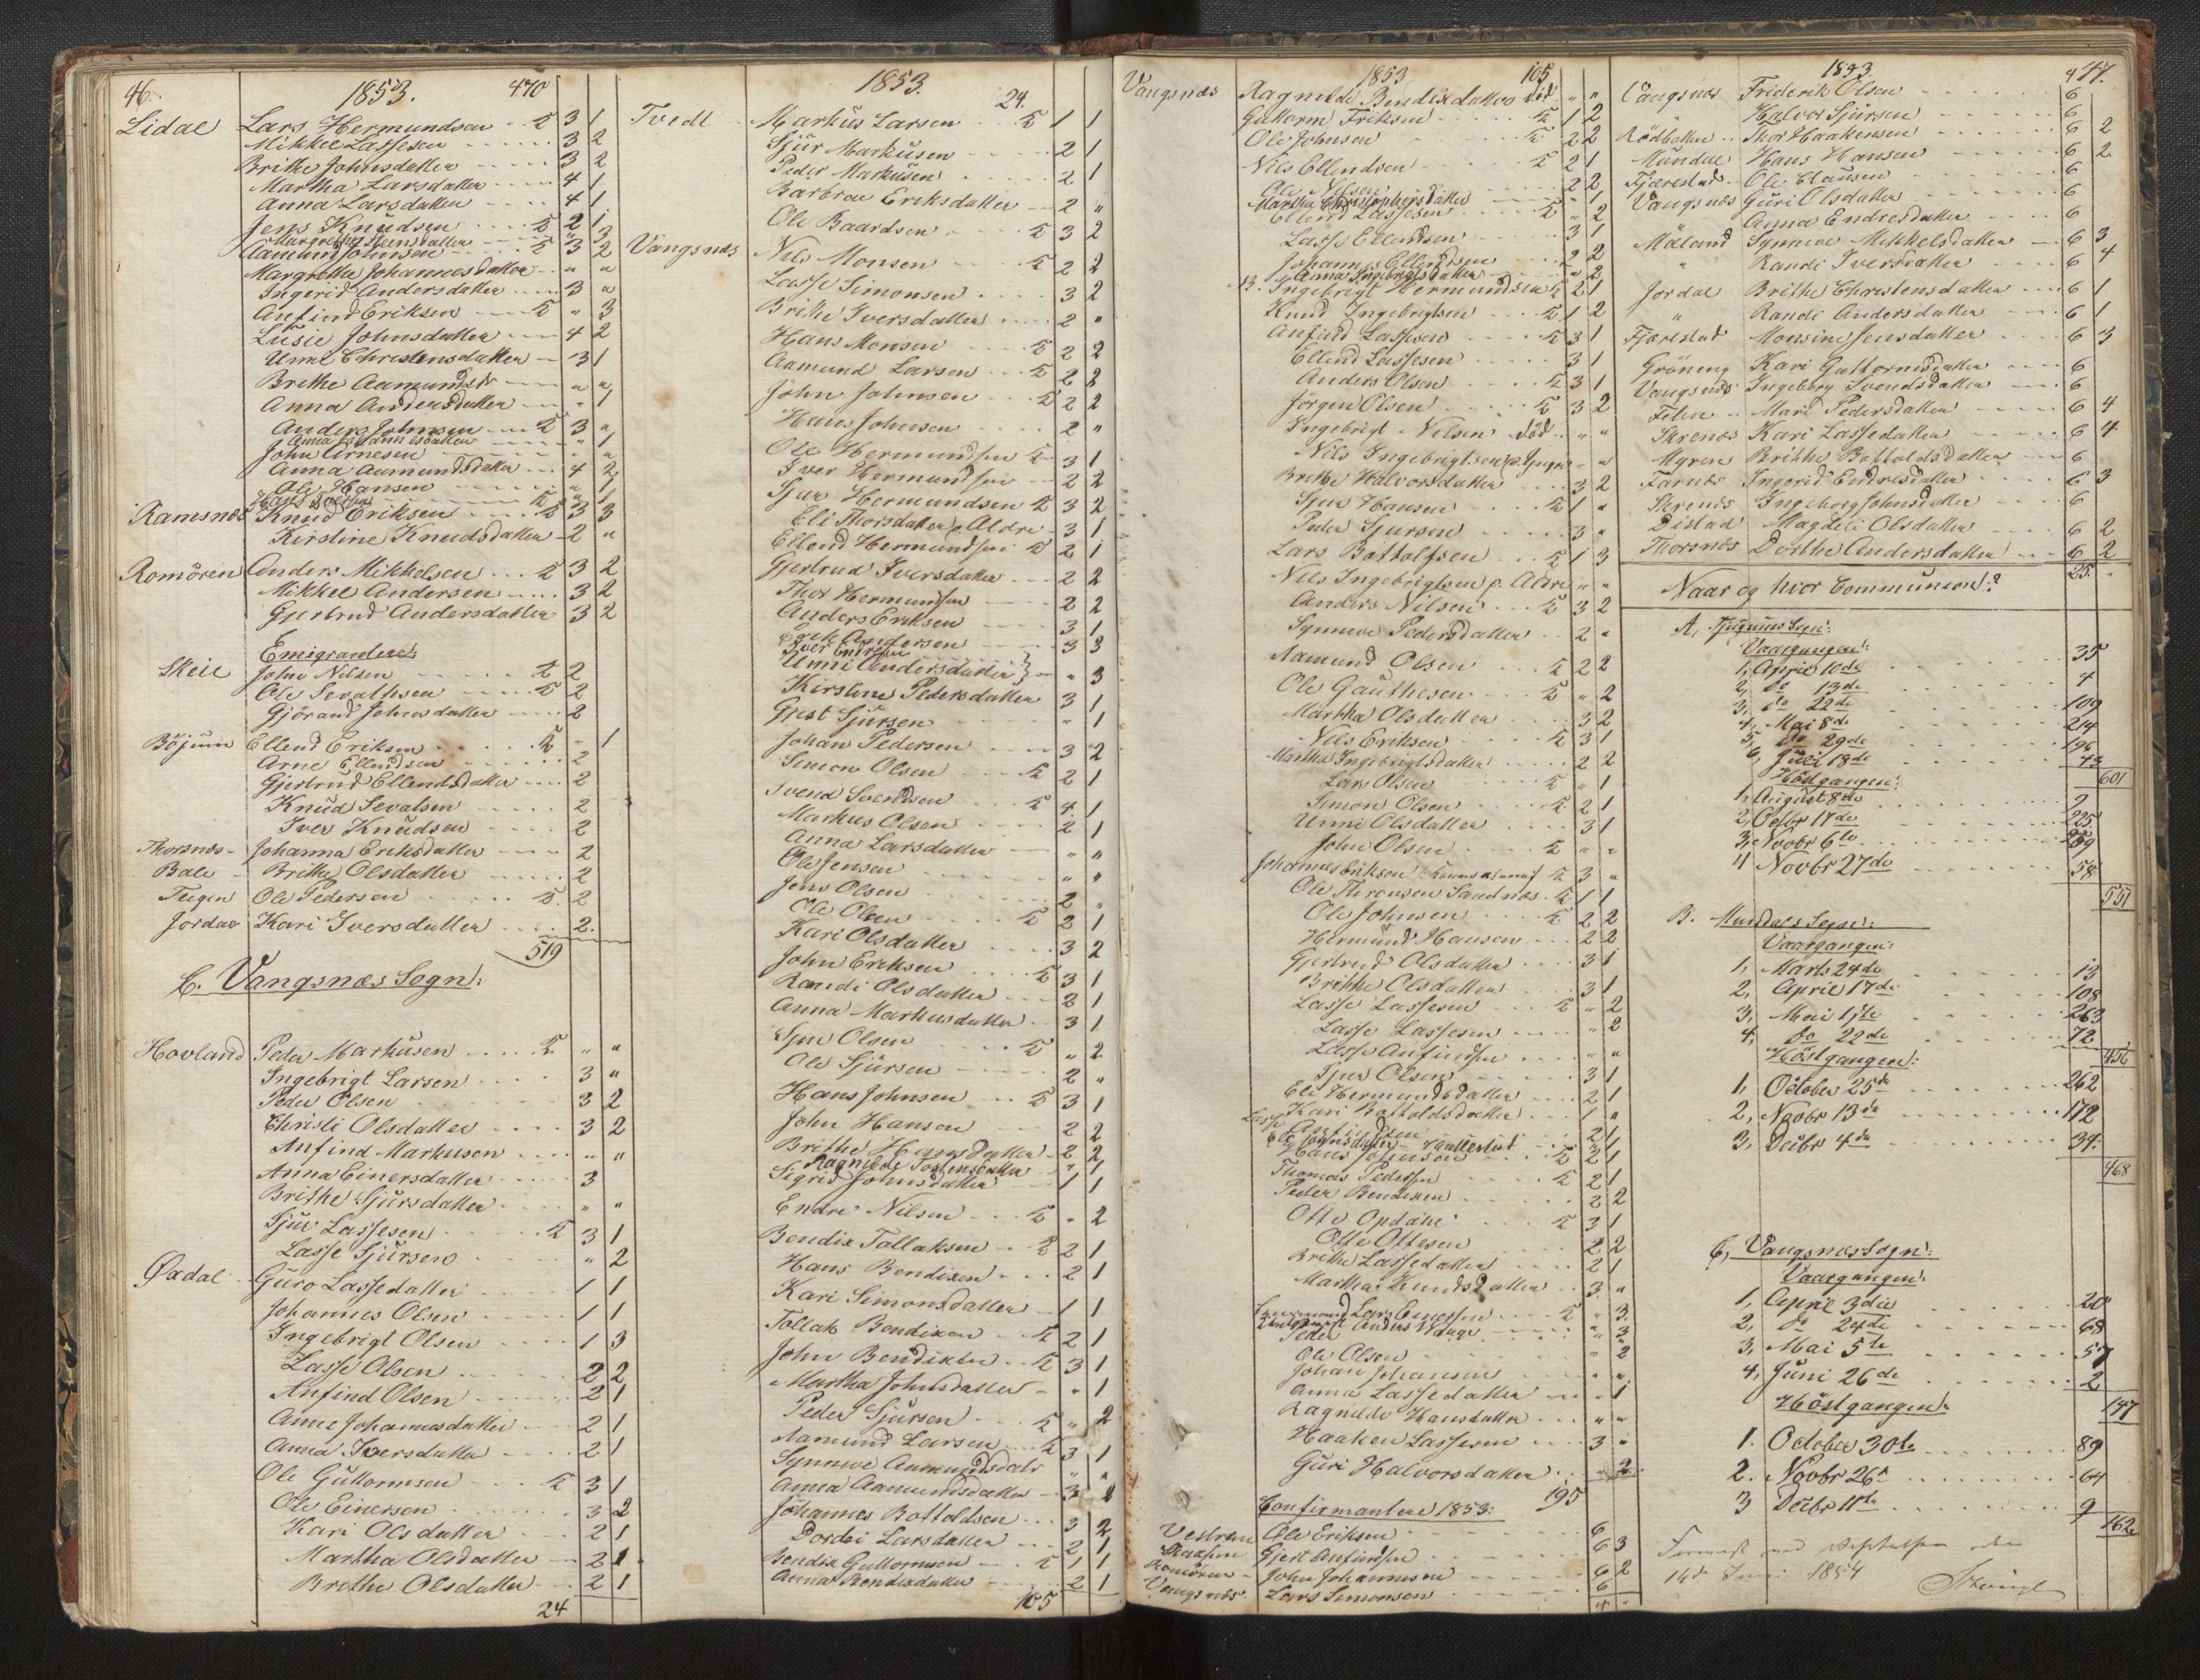 46.
1853. 470
Lidal Lars Hermundsen 3 1
Mikkel Lassesen 3 2
Brithe Johnsdatter 3 2
Martha Larsdatter 4 1
Anna Larsdatter 4 1
Jens Knudsen 2 1
Margrethe Steensdatter " 3
Aamund Johnsen 3 2
Margrethe Johannesdatter " "
Ingerid Andersdatter 3 "
Anfind Eriksen " 3
Lusie Johnsdatter 4 2
Unni Christensdatter 3 1
Brithe Aamundsdr " "
Anna Andersdatter " 1
Anders Johnsen 3 "
Anna Johannesdatter " 1
John Arnesen " "
Anna Aamundsdatter 4 2
Ole Hansen " 1
Hans " 1
Ramsnæs Knud Eriksen 3 3
Kirstine Knudsdatter 2 "
Romören Anders Mikkelsen 3 2
Mikkel Andersen 3 2
Gjertrud Andersdatter 3 2
Emigrandere
Skeie John Nilsen 2
Ole Sevathsen 2
Gjörand Johnsdatter 2
Böjum Ellend Eriksen " 1
Arne Ellendsen 2
Gjertrud Ellendsdatter 2
Knud Sevatsen 2
Iver Knudsen 2
Thorsnæs Johanna Eriksdatter 2
Bale Brithe Olsdatter 2
Teigen Ole Pedersen 2
Jordal Kari Iversdatter 2.
519
C. Vangsnæs Sogn:
Hovland Peder Markusen " "
Ingebrigt Larsen 3 "
Peder Olsen 3 2
Christi Olsdatter 3 2
Anfind Markusen " "
Anna Einersdatter 3
Brithe Sjursdatter " "
Sjur Lassesen 3 1
Lasse Sjursen " 2
Oxdal Guro Lassedatter 1 1
Johannes Olsen 1 1
Ingebrigt Olsen 1 3
Lasse Olsen 2 2
Anfind Olsen 2 1
Anne Johannesdatter 2 1
Anna Iversdatter 2 1
Ole Guttormsen 3 1
Ole Einersen 3 2
Kari Olsdatter 2 1
Martha Olsdatter 2 1
Brethe Olsdatter 2 1
24
1853.
24.
Tvedt Markus Larsen 1 1
Sjur Markusen 2 1
Peder Markusen 2 1
Barbroe Eriksdatter 2 "
Ole Baardsen 3 2
Vangsnæs Nils Monsen 2 2
Lasse Simonsen 3 2
Brithe Iversdatter 2 "
Hans Monsen 2 2
Aamund Larsen 2 2
John Johnsen 2 2
Hans Johnsen 2 "
Ole Hermundsen 3 1
Iver Hermundsen 2 2
Sjur Hermundsen 3 2
Eli Thorsdatter p. Aldre 3 1
Ellend Hermundsen 2 1
Gjertrud Iversdatter 2 2
Thor Hermundsen 2 2
Anders Eriksen 3 1
Erik Andersen 3 3
Iver Endresen
Unni Andersdatter " 3
Kirstine Pedersdatter 3 1
Gjest Sjursen " 1
Johan Pedersen 3 2
Simon Olsen 2 1
Svend Svendsen 4 1
Markus Olsen 2 1
Anna Larsdatter " "
Ole Jensen " "
Jens Olsen 2 "
Ole Olsen 2 1
Kari Olsdatter 3 2
John Eriksen 3 1
Randi Olsdatter 2 1
Anna Markusdatter 3 1
Sjur Olsen " 2
Ole Sjursen 2 "
Hans Johnsen 3 1
John Hansen 2 2
Brithe Hansdatter 2 2
Ragnilde Tostensdatter " 1
Sigrid Johnsdatter 1 1
Endre Nilsen " 2
Bendix Tollaksen 2 1
Hans Bendixen 2 1
Kari Simonsdatter 1 1
Tollak Bendixen 2 1
John Bendixen 3 1
Martha Johnsdatter " 1
Peder Sjursen " 2
Aamund Larsen 3 1
Synneve Aamundsdatr " "
Anna Aamundsdatter 3 2
Johannes Bottoldsen 3 2
Dordei Larsdatter 2 1
Bendix Guttormsen 1 1
Anna Bendixdatter 2 1
105
1853 105
Vangsnæs Ragnilde Bendixdatter död " "
Guttorm Eriksen 1 2
Ole Johnsen 2 2
Nils Ellendsen 2 1
Ole Nilsen 2 2
Martha Christophersdatter " 1
Ellend Lassesen " 2
Lasse Ellendsen 3 1
Johannes Ellendsen 2 2
Anna Ingebrigtsdatter " 2
Ingebrigt Hermundsen 2 1
Knud Ingebrigtsen 1 2
Anfind Lassesen 3 1
Ellend Lassesen 3 1
Anders Olsen 3 1
Jörgen Olsen 3 2
Ingebrigt Nilsen död " "
Nils Ingebrigtsen " "
Brethe Halvorsdatter 3 2
Sjur Hansen 1 "
Peder Sjursen 3 "
Lars Bottolfsen 1 3
Nils Ingebrigtsen p. Aldre " "
Anders Nilsen 3 2
Synneve Pedersdatter 2 "
Aamund Olsen 2 2
Ole Gauthesen " 2
Martha Olsdatter 3 2
Nils Eriksen 3 1
Martha Ingebrigtsdatter 2 2
Lars Olsen " 1
Simon Olsen 2 1
Unni Olsdatter 3 1
John Olsen " "
Johannes Eriksen 3 "
Ole Thronsen Sandnæs 1 1
Ole Johnsen 2 2
Hermund Hansen 2 2
Gjertrud Olsdatter 3 1
Brithe Olsdatter 3 1
Lasse Lassesen " 2
Lasse Lassesen " 2
Lasse Anfindsen " "
Sjur Olsen 3 1
Eli Hermundsdatter 2 1
Kari Bottoldsdatter 1 "
Lasse Anfindsen 2 1
Hans Johnsen 2 1
Thomas Pedersen 2 1
Peder Bendixen 2 2
Otto Opdahl 3 1
Otte Ottesen 2 2
Brithe Lassedatter 2 1
Martha Knudsdatter 3 "
Lars Einersen " 3
Anders " 3
Peder " "
Ole Olsen " 2
Johan Johansen " "
Anna Lassedatter " 1
Ragnilde Hansdatter " "
Haaken Lassesen 3 "
Guri Halvorsdatter " 2
195
Confirmantere 1853:
Vestrem Ole Eriksen 6
Gjert Anfindsen 6 3
Romören John Johannesen 6 2
Vangsnæs Lars Simonsen 6
4
1853.
4 47.
Vangsnæs Friderik Olsen 6
" Halvor Sjursen 6
Rödbotten Thor Haakensen 6 2
Mundal Hans Hansen 6 2
Fjærestad Ole Clausen 6
Vangsnæs Guri Olsdatter 6
Anna Endresdatter 6
Mäland Synneve Mikkelsdatter 6 3
" Randi Iversdatter 6 4
Jordal Brithe Christensdatter 6 1
" Randi Andersdatter 6 1
Fjærestad Monsine Jensdatter 6 3
Gröneng Kari Guttormsdatter 6
Vangsnæs Ingeborg Svendsdatter 6
Fehn Mari Pedersdatter 6 4
Skrenæs Kari Lassedatter 6 4
Myren Brithe Bottoldsdatter 6
Farnæs Ingerid Endresdatter 6 3
Skrenæs Ingeborg Johnsdatter 6
Distad Magdeli Olsdatter 6 2
Thorsnæs Dorthe Andersdatter 6 2
25. "
Naar og hvor Communion?
A, Tjugums Sogn:
Vaargangen:
1, April 10de 35
2, do 13de 4
3, do 22de 109
4, Mai 8de 214
5, do 29de 196
6, Juli 18de 43
601
Höstgangen:
1, August 8de 9
2, Octbr 17de 225
3, Novbr 6te 259
4 Novbr 27de 58
551
B. Mundals Sogn:
Vaargangen:
1, Marts 24de 13
2, April 17de 108
3, Mai 1ste 263
4, do 22de 72
456
Höstgangen:
1, October 25de 262
2, Novbr 13de 172
3, Decbr 4de 34.
468
C, Vangsnæs Sogn:
Vaargangen:
1, April 3die 20
2, do 24de 68
3, Mai 5te 57
4, Juni 26de 2
147
Höstgangen:
1. October 30te 89
2. Novbr 26de 64
3 Decbr 11te 9
162
14de Juni 1854